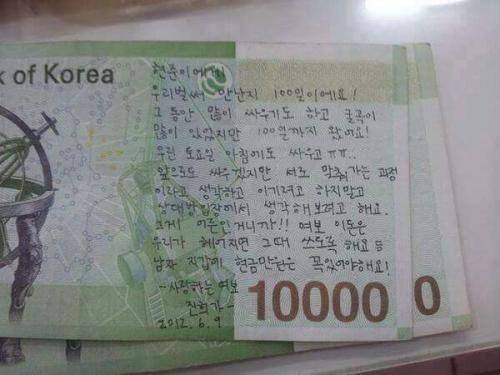 k of Korea
현준이에게
우리벌써 만난지 100일이에요!
그동안 많이 싸우기도 하고 굴곡이
많이 있었지만 100일까지 왔어요!
우린 토요일 아침에도 싸우고 ㅠㅠ..
앞으로도 싸우겠지만 서로 맞춰가는 과정
이라고 생각하고 이기려고 하지말고
상대방입장에서 생각해보려고 해요.
그게 어른인거니까!! 여보 이돈은
우리가 헤어지면 그때 쓰도록 해요
남자 지갑에 현금만원은 꼭있어야해요!
-사랑하는 여보
진희가-
2012. 6. 9
10000
0